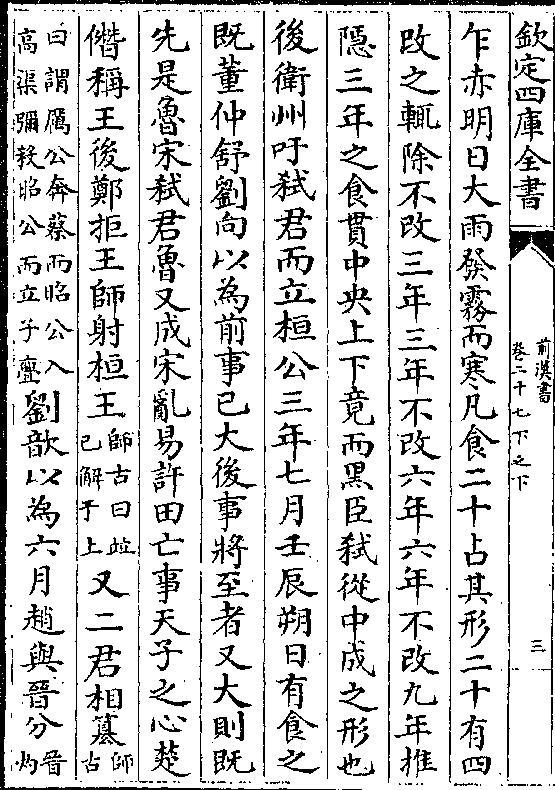 欽定四庫全書
前漢書
卷二十七下之下
三
乍赤明日大雨發霧而寒凡食二十占其形二十有四
改之輒除不改三年三年不改六年六年不改九年推
隱三年之食貫中央上下竟而黑臣弑從中成之形也
後衛州吁弑君而立桓公三年七月壬辰朔日有食之
既董仲舒劉向以為前事已大後事將至者又大則既
先是魯宋弑君魯又成宋亂易許田亡事天子之心楚
僭稱王後鄭拒王師射桓王師古曰竝已解于上又二君相簒師古
曰謂厲公奔蔡而昭公入高渠彌殺昭公而立子亹劉歆以為六月趙與晉分晉灼